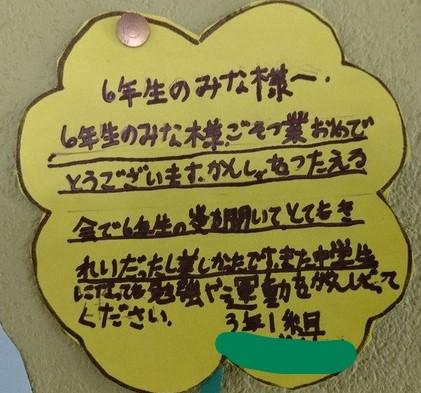 6年生のみな様へ.
6年生のみな様、ごそつ業おめで
とうございます。かんしゃをつたえる
会で6年生の を聞いてとてもき
れいだったし楽しかたです。また中学生
になっても勉強や運動をがんばって
ください.
3年1組